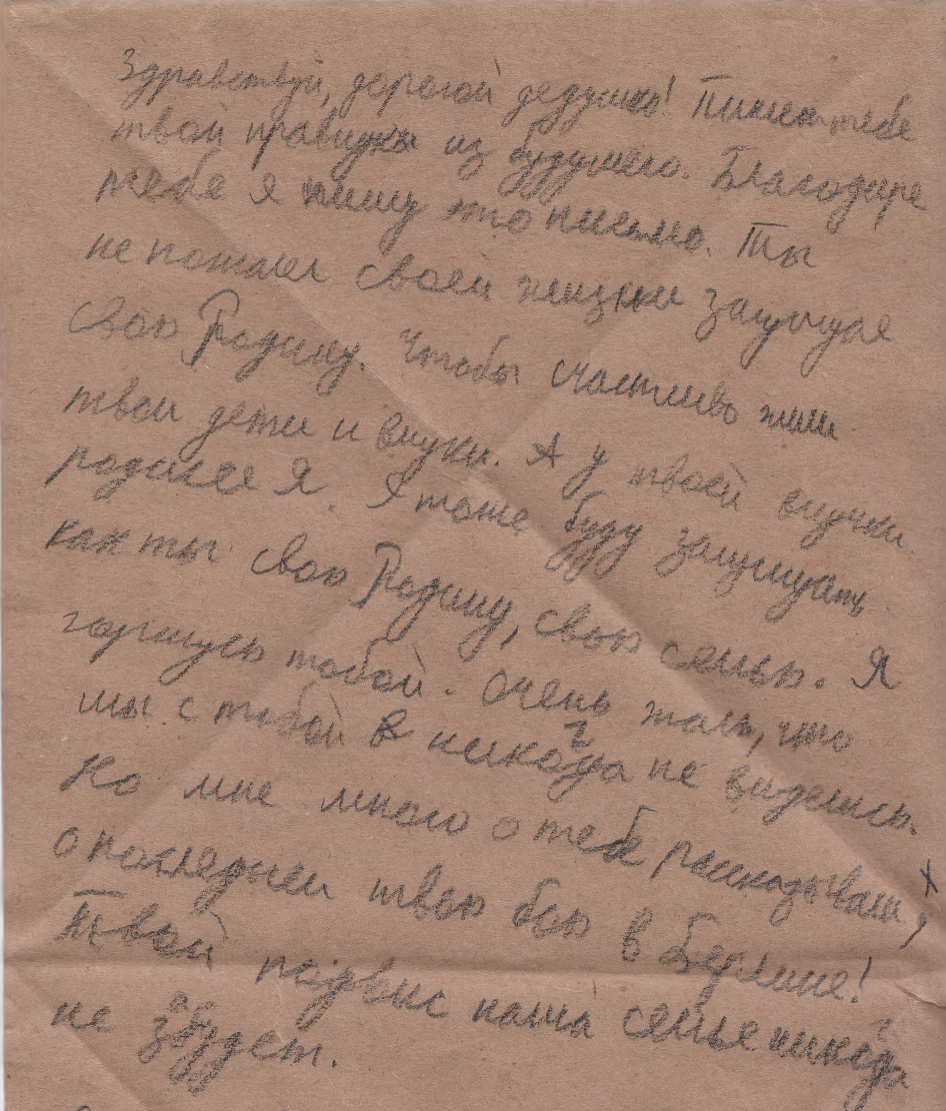 Здравствуй, дорогой дедушка! Пишет тебе
твой правнук из будущего. Благодаря
тебе я пишу это письмо. Ты
не пожалел своей жизни защищая
свою Родину. Чтобы счастливо жили
твои дети и внуки. А у твоей внучки
родился Я. Я тоже буду защищать
как ты свою Родину, свою семью. Я
горжусь тобой. Очень жаль, что
мы с тобой никогда не виделись.
Но мне много о тебе рассказывали,
о последнем твою бою в Берлине!
Твой подвиг наша семья никогда
не забудет.